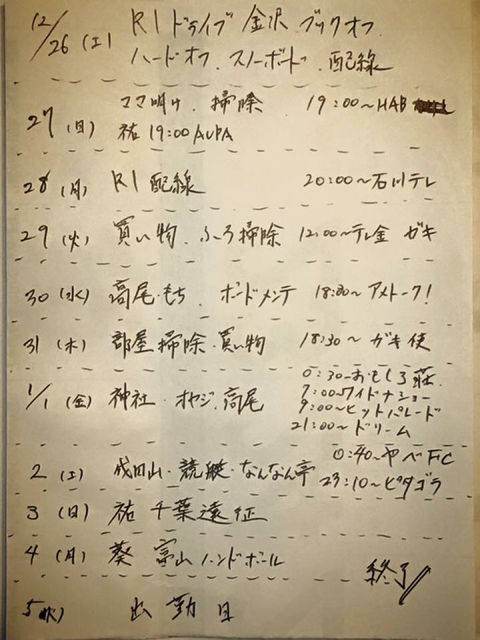 12/26(土) R1ドライブ 金沢 ブックオフ
ハードオフ.スノーボード.配線
27(日) ママ明け.掃除 19:00~HAB
祐19:00AUPA
28(月) R1配線 20:00~石川テレ
29(火) 買い物.ふろ掃除 12:00~テレ金 ガキ
30(水) 高尾.もち.ボードメンテ 18:30~アメトーク!
31(木) 部屋掃除.買い物 18:30~ガキ使
1/1(金) 神社・オヤジ.高尾 0:30~おもしろ荘.
7:00~ワイドナショー
9:00~ヒットパレード
21:00~ドリーム
2(土) 成田山・競艇・なんなん亭 0:40~やべFC
23:10~ピタゴラ
3(日) 祐 千葉遠征
4(月) 葵 富山ハンドボール
終了
5(火) 出勤日